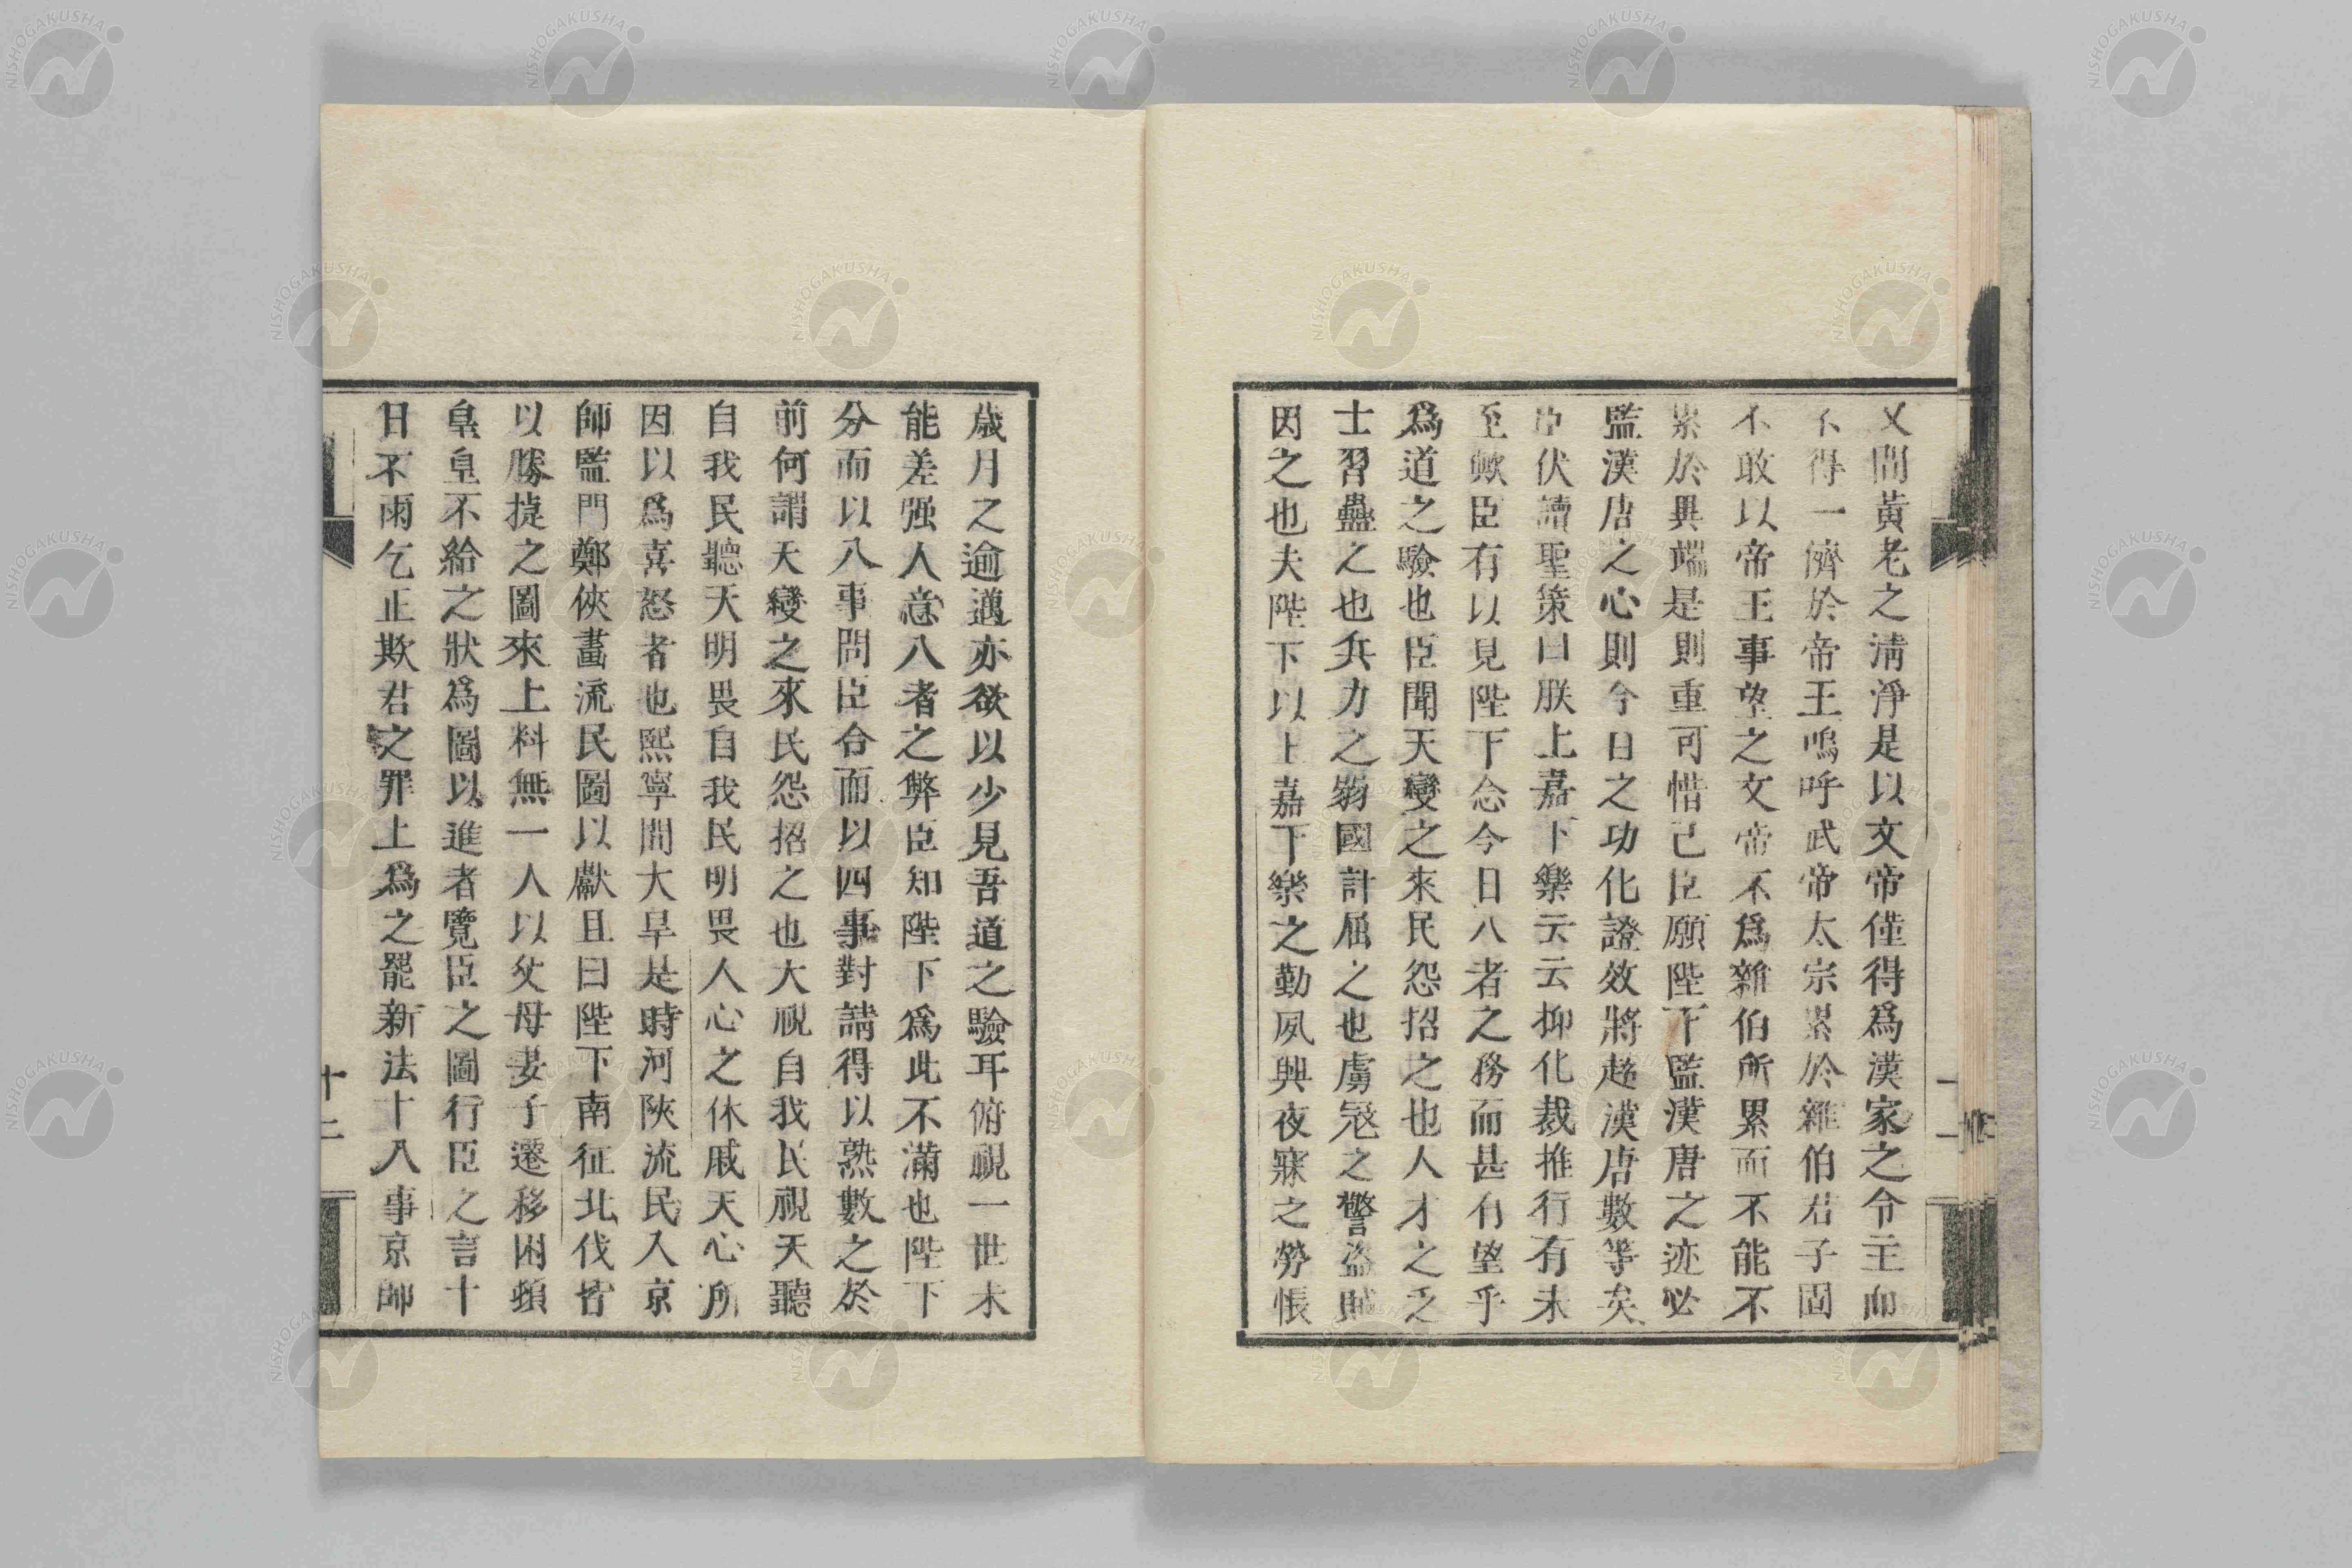 又間黃老之淸淨是以文帝僅得爲漢家之令主而
不得一儕於帝王嗚呼武帝太宗累於雜伯君子固
不敢以帝王事望之文帝不爲雜伯所累而不能不
累於異端是則重可惜已臣願陛下監漢唐之迹必
監漢唐之心則今日之功化證效將超漢唐數等矣
臣伏讀聖策曰朕上嘉下樂云云抑化裁推行有未
至歟臣有以見陛下念今日八者之務而甚有望乎
爲道之驗也臣聞天變之來民怨招之也人才之乏
士習蠱之也兵力之弱國計屈之也虜寇之警盜賊
因之也夫陛下以上嘉下樂之勤夙興夜寐之勞悵
歲月之逾邁亦欲以少見吾道之驗耳俯視一世未
能差强人意八者之弊臣知陛下爲此不滿也陛下
分而以八事問臣合而以四事對請得以熟數之於
前何謂天變之來民怨招之也大視自我民視天聽
自我民聽天明畏自我民明畏人心之休戚天心所
因以爲喜怒者也熙寧間大旱是時河陝流民入京
師監門鄭俠畫流民圖以獻且曰陛下南征北伐皆
以勝捷之圖來上料無一人以父母妻子遷移困頓
皇皇不給之狀爲圖以進者覽臣之圖行臣之言十
日不雨乞正欺君之罪上爲之罷新法十八事京師
十二
NISHOGAKUSHA